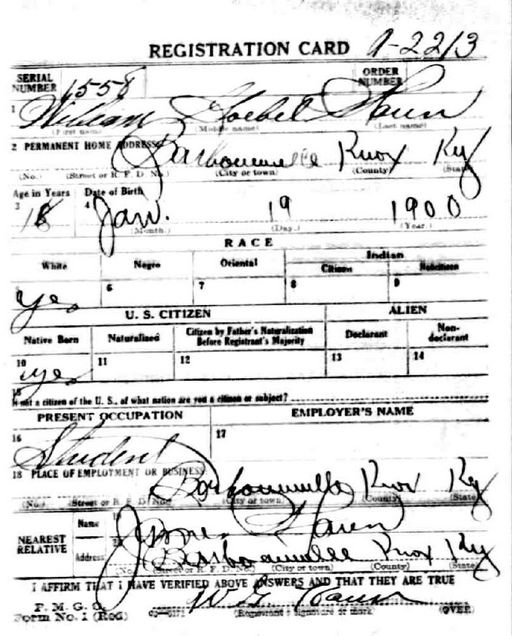 REGISTRATION CARD A-2213
SERIAL NUMBER 1558 ORDER NUMBER
1 William Goebel
(First name) (Middle name) (Last name)
2 PERMANENT HOME ADDRESS Barbourville Knox Ky
(No.) (Street or R. F. D. No.) (City or town) (County) (State)
Age in Years Date of Birth
3 18 4 Jan. 19 1900
(Month.) (Day.) (Year.)
RACE
White Negro Oriental Indian
Citizen Noncitizen
5 6 7 8 9
Yes
U. S. CITIZEN ALIEN
Native Born Naturalized Citizen by Father's Naturalization Before Registrant's Majority Declarant Non-declarant
10 11 12 13 14
Yes
15
If not a citizen of the U. S., of what nation are you a citizen or subject?
PRESENT OCCUPATION EMPLOYER'S NAME
16 Student 17
18 PLACE OF EMPLOYMENT OR BUSINESS
Barbourville Knox Ky
(No.) (Street or R. F. D. No.) (City or town) (County) (State)
NEAREST RELATIVE Name 19 James
Address 20 Barbourville Knox Ky
(No.) (Street or R. F. D. No.) (City or town) (County) (State)
I AFFIRM THAT I HAVE VERIFIED ABOVE ANSWERS AND THAT THEY ARE TRUE
P. M. G. O. W. G.
Form No. 1 (Red) (Registrant's signature or mark) (OVER)